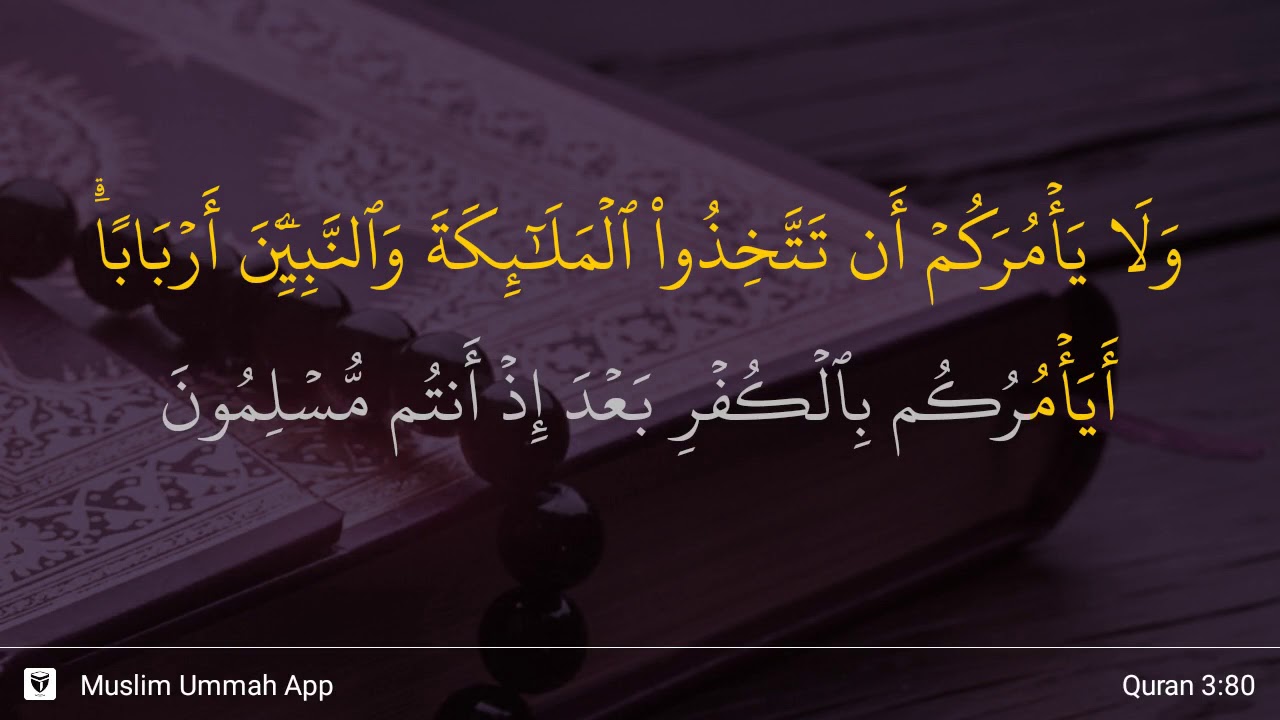 وَلَا يَأۡمُرَكُمۡ أَن تَتَّخِذُواْ ٱلۡمَلَـٰٓئِكَةَ وَٱلنَّبِيِّـۧنَ أَرۡبَابًاۗ
أَيَأۡمُرُكُم بِٱلۡكُفۡرِ بَعۡدَ إِذۡ أَنتُم مُّسۡلِمُونَ
Muslim Ummah App
Quran 3:80